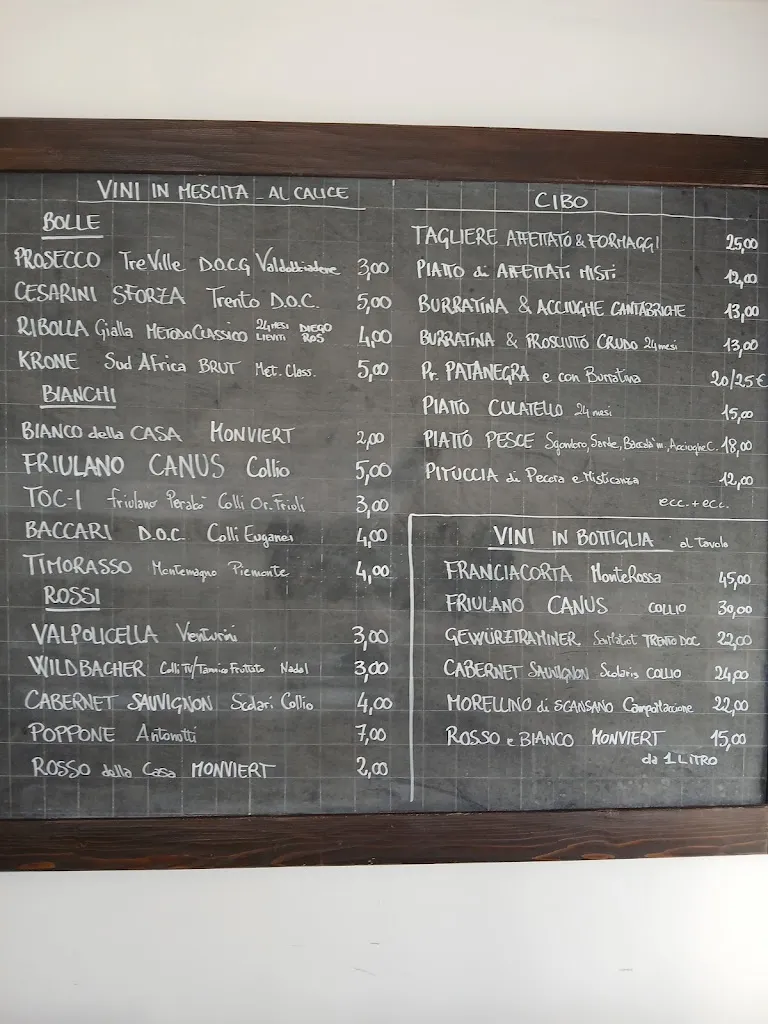 VINI IN MESCITA - AL CALICE
BOLLE
PROSECCO TreVille D.O.C.G Valdobbiadene 3,00
CESARINI SFORZA Trento D.O.C. 5,00
RIBOLLA Gialla METODO CLASSICO 24 MESI LIEVITI DIEGO ROS 4,00
KRONE Sud Africa BRUT Met. Class. 5,00
BIANCHI
BIANCO della CASA MONVIERT 2,00
FRIULANO CANUS Collio 5,00
TOC-I friulano Perabò Colli Or. Frioli 3,00
BACCARI D.O.C. Colli Euganei 4,00
TIMORASSO Montemagno Piemonte 4,00
ROSSI
VALPOLICELLA Venturini 3,00
WILDBACHER Colli TV/Tannico Fruttato Nadal 3,00
CABERNET SAUVIGNON Scolari Collio 4,00
POPPONE Antonotti 7,00
ROSSO della Casa MONVIERT 2,00
CIBO
TAGLIERE AFFETTATO & FORMAGGI 25,00
PIATTO di AFFETTATI MISTI 12,00
BURRATINA & ACCIUGHE CANTABRICHE 13,00
BURRATINA & PROSCIUTTO CRUDO 24 mesi 13,00
Pr. PATANEGRA e con Burratina 20/25€
PIATTO CULATELLO 24 mesi 15,00
PIATTO PESCE Sgombro, Sarde, Baccalà m, Acciughe C. 18,00
PITUCCIA di Pecora e Misticanza 12,00
ecc. + ecc.
VINI IN BOTTIGLIA al Tavolo
FRANCIACORTA MonteRossa 45,00
FRIULANO CANUS COLLIO 30,00
GEWÜRZTRAMINER TRENTO DOC 22,00
CABERNET SAUVIGNON Scolaris COLLIO 24,00
MORELLINO di SCANSANO Campattaccione 22,00
ROSSO e BIANCO MONVIERT 15,00
da 1 LITRO